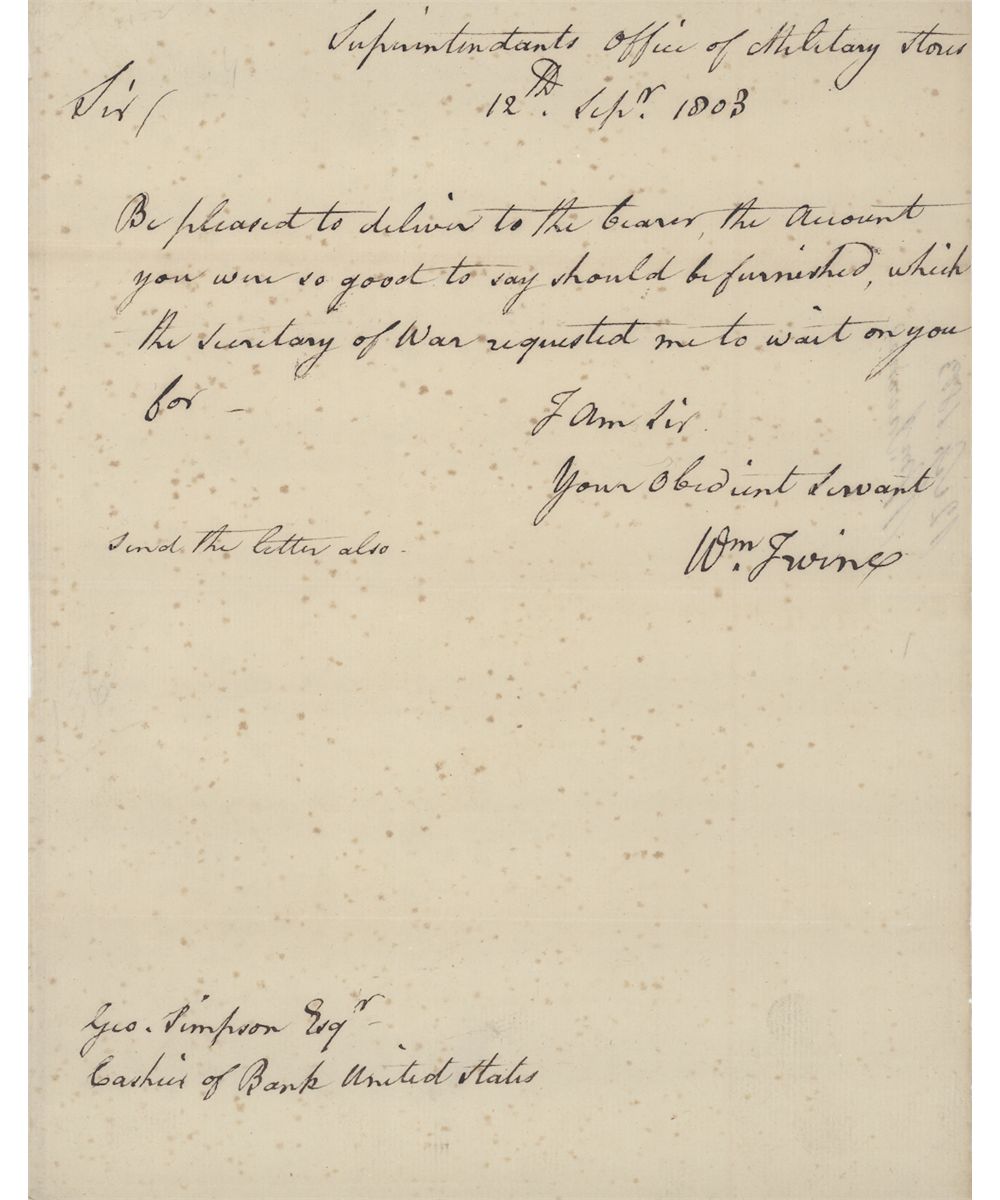 Superintendants Office of Military Stores
12th. Sepr. 1803
Sir/
Be pleased to deliver to the bearer, the Account
you were so good to say should be furnished, which
the Secretary of War requested me to wait on you
for -
I Am Sir.
Your Obedient Servant
Wm. Irvine
Send the letter also -
Geo. Simpson Esqr
Cashier of Bank United States